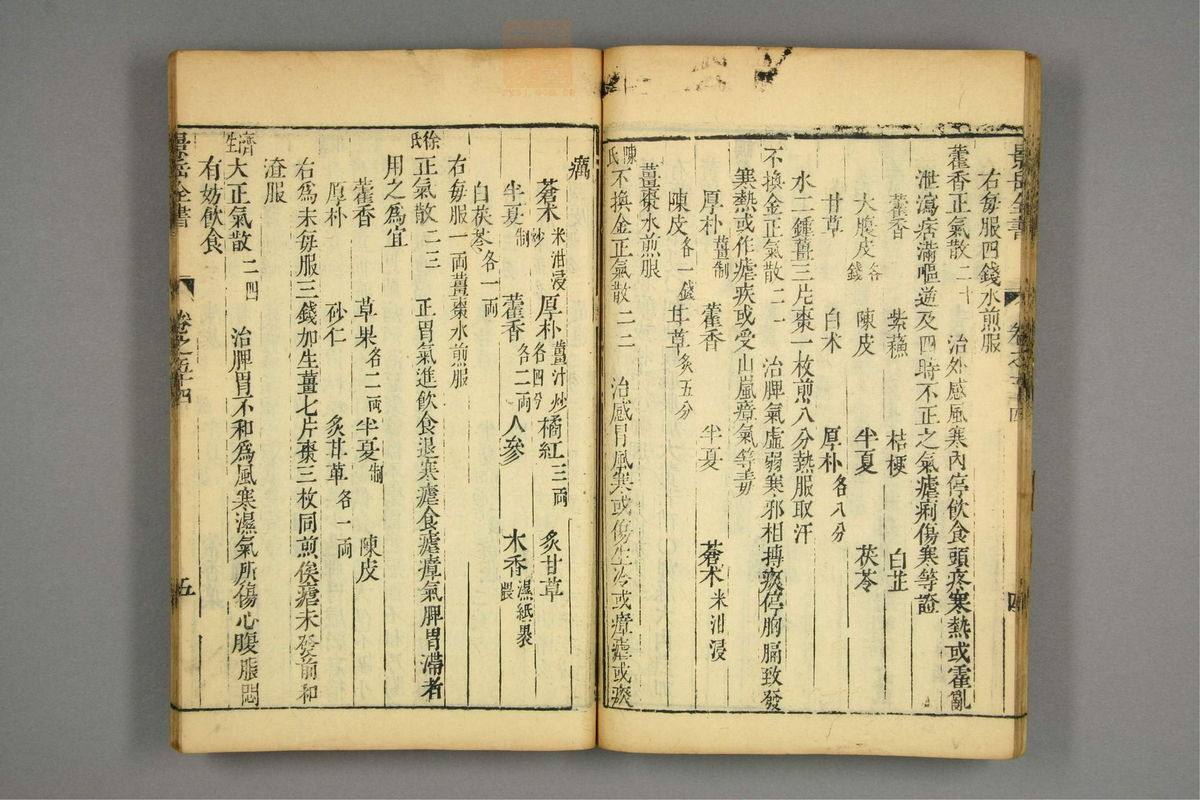 景岳全書 卷之五十四 四
右每服四錢水煎服
藿香正氣散二十 治外感風寒內停飲食頭疼寒熱或霍亂
泄瀉痞滿嘔逆及四時不正之氣瘧痢傷寒等證
藿香 紫蘇 桔梗 白芷
大腹皮各一錢 陳皮 半夏 茯苓
甘草 白朮 厚朴各八分
水二鍾薑三片棗一枚煎八分熱服取汗
不換金正氣散二一 治脾氣虛弱寒邪相搏痰停胸膈致發
寒熱或作瘧疾或受山嵐瘴氣等毒
厚朴薑製 藿香 半夏 蒼朮米泔浸
陳皮各一錢 甘草炙五分
薑棗水煎服
陳氏不換金正氣散二二 治感冒風寒或傷生冷或瘴瘧或疫
癘
蒼朮米泔浸炒 厚朴薑汁炒各四兮 橘紅三両 炙甘草
半夏制 藿香各二両 人參 木香濕紙裹煨
白茯苓各一両
右每服一両薑棗水煎服
徐氏正氣散二三 正胃氣進飲食退寒瘧食瘧瘴氣脾胃滯者
用之爲宜
藿香 草果各二両 半夏制 陳皮
厚朴 砂仁 炙甘草各一両
右爲末每服三錢加生薑七片棗三枚同煎俟瘧未發前和
渣服
濟生大正氣散二四 治脾胃不和爲風寒濕氣所傷心腹脹悶
有妨飲食
景岳全書 卷之五十四 五